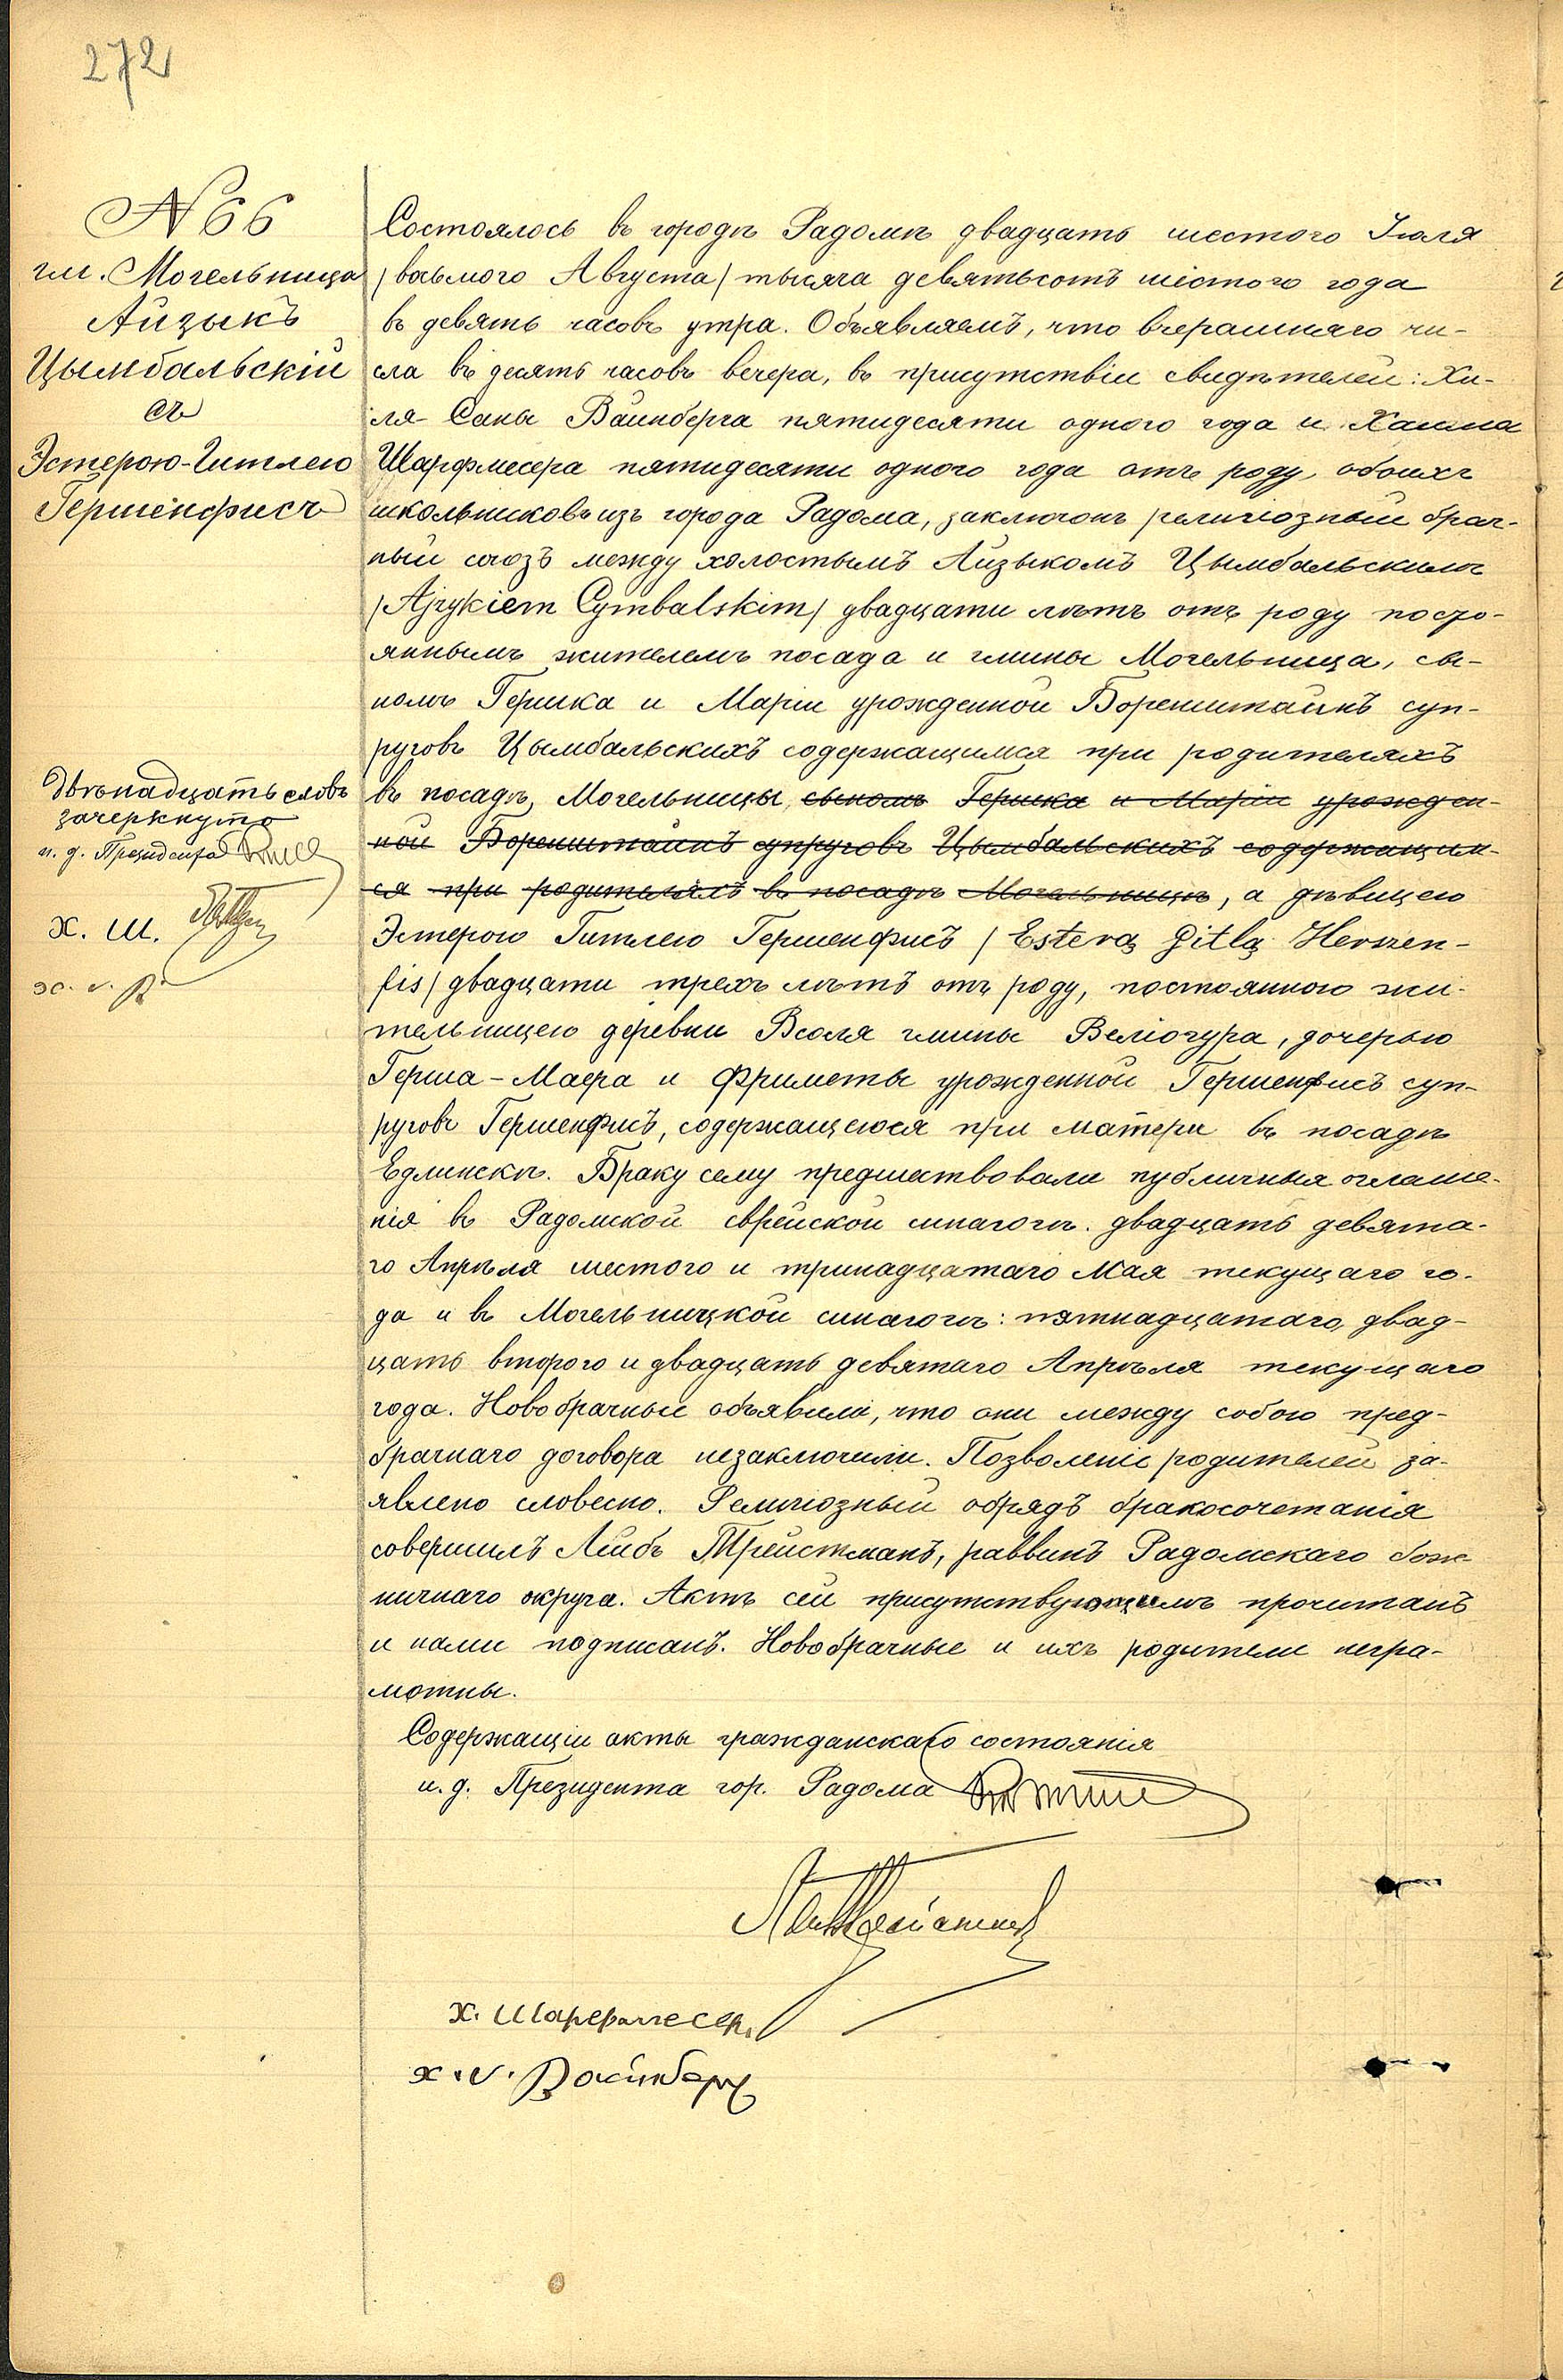 272
№ 66
гм. Могельница
Айзыкъ
Цымбальскій
съ
Эстерою-Гитлею
Гершенфисъ
Состоялось въ городѣ Радомѣ двадцать шестого Іюля
/восьмого Августа/ тысяча девятьсотъ шестого года
въ девять часовъ утра. Объявляемъ, что вчерашняго чи-
сла въ десять часовъ вечера, въ присутствіи свидѣтелей: Хи-
ля Саны Вайнберга пятидесяти одного года и Хаима
Шарфмесера пятидесяти одного года отъ роду, обоихъ
школьниковъ изъ города Радома, заключонъ религіозный брач-
ный союзъ между холостымъ Айзыкомъ Цымбальскимъ
/Ajzykiem Cymbalskim/ двадцати лѣтъ отъ роду посто-
яннымъ жителемъ посада и гмины Могельница, сы-
номъ Гершка и Маріи урожденной Боренштайнъ суп-
руговъ Цымбальскихъ содержащимся при родителяхъ
въ посадѣ Могельницы, сыномъ Гершка и Маріи урожден-
ной Боренштайнъ супруговъ Цымбальскихъ содержащим-
ся при родителяхъ въ посадѣ Могельницѣ, а дѣвицею
Эстерою Гитлею Гершенфисъ /Esterą Gitlą Herszen-
fis/ двадцати трехъ лѣтъ отъ роду, постоянною жи-
тельницею деревни Всоля гмины Веліогура, дочерью
Герша-Маера и Фриметы урожденной Гершенфисъ суп-
руговъ Гершенфисъ, содержащеюся при матери въ посадѣ
Едлинскѣ. Браку сему предшествовали публичныя оглаше-
нія въ Радомской еврейской синагогѣ: двадцать девята-
го Апрѣля шестого и тринадцатаго Мая текущаго го-
да и въ Могельницкой синагогѣ: пятнадцатаго, двад-
цать второго и двадцать девятаго Апрѣля текущаго
года. Новобрачные объявили, что они между собою пред-
брачнаго договора незаключили. Позволеніе родителей за-
явлено словесно. Религіозный обрядъ бракосочетанія
совершилъ Лейбъ Трейстманъ, раввинъ Радомскаго бож-
ничнаго округа. Актъ сей присутствующимъ прочитанъ
и нами подписанъ. Новобрачные и ихъ родители негра-
мотны.
Двѣнадцать словъ
зачеркнуто
и. д. Президента
Х. Ш.
Х. С. В
Содержащій акты гражданскаго состоянія
и. д. Президента гор. Радома
Х. Шарфмесер
Х. С. Вайнберг